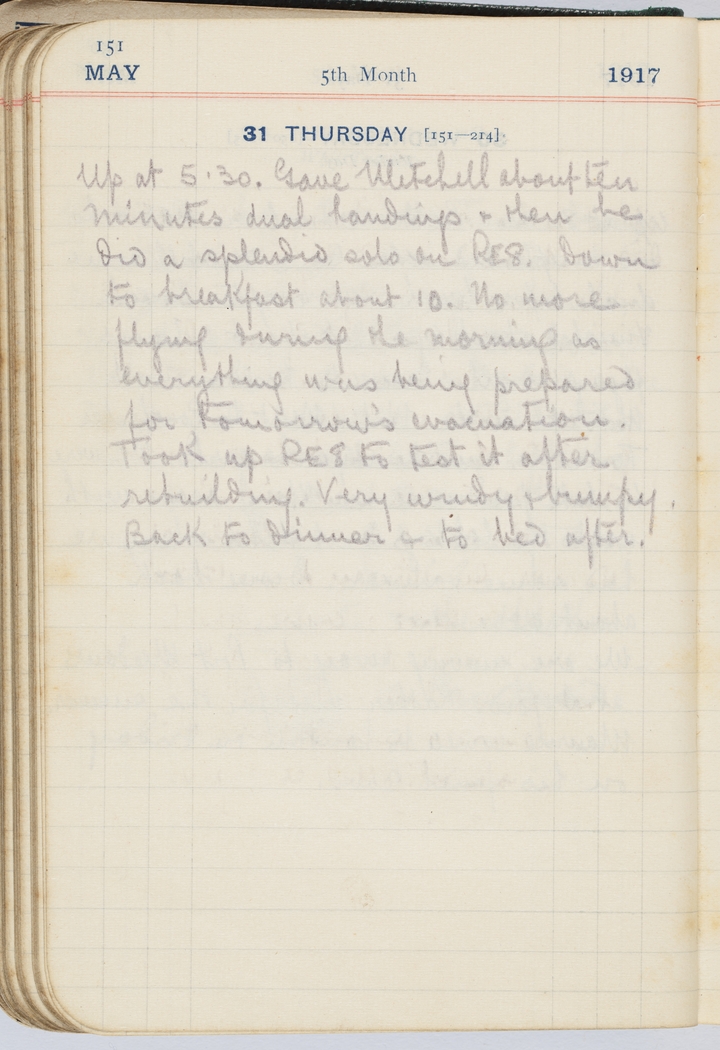 151
MAY 5th Month 1917
31 THURSDAY [151—214]
Up at 5.30. Gave Mitchell about ten
minutes dual landings + then he
did a splendid solo on RE8. Down
to breakfast about 10. No more
flying during the morning as
everything was being prepared
for tomorrow's evacuation.
Took up RE8 to test it after
rebuilding. Very windy + bumpy.
Back to dinner + to bed after.